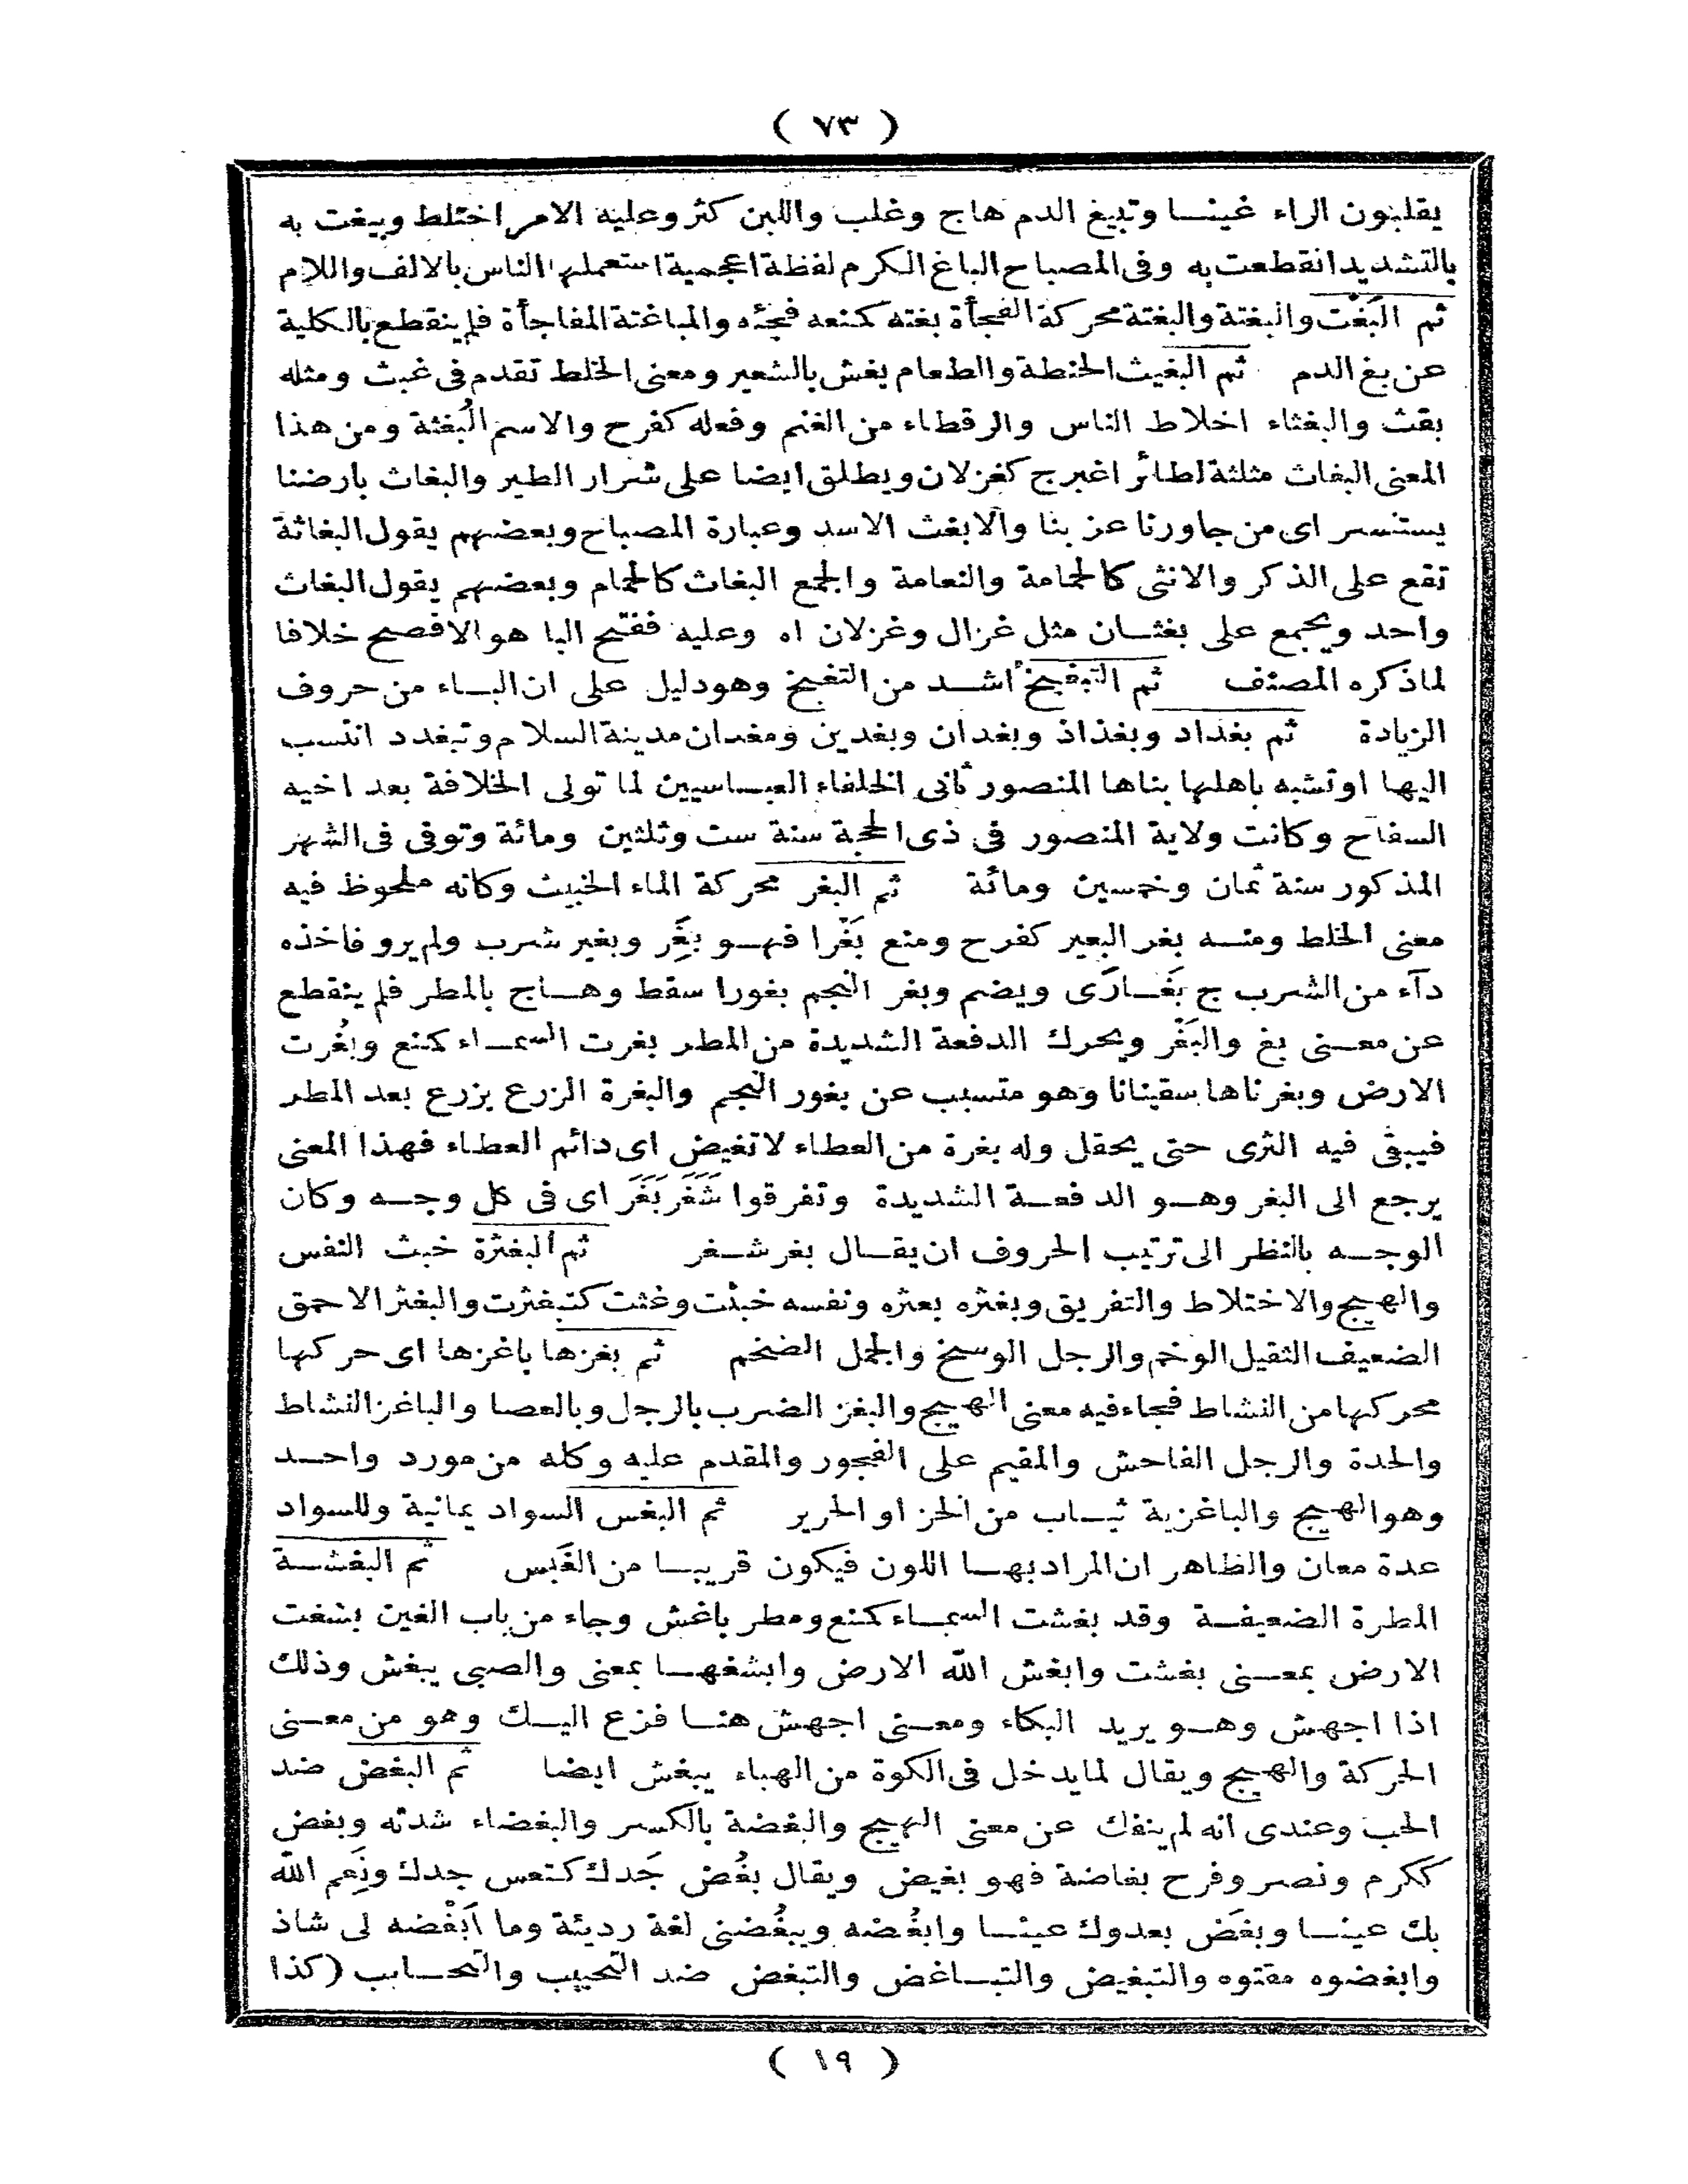 ( ٧٣ )
يقلبون الراء غينـــا وتبيغ الدم هاج وغلب واللبن كثر وعليه الامر اختلط وبيغت به
بالتشديد انقطعت به وفى المصباح الباغ الكرم لفظة اعجمية استعملها الناس بالالف واللام
ثم البَغْت والبغتة والبغتة محركة الفجأة بغته كمنعه فجئه والمباغتة المفاجأة فلم ينقطع بالكلية
عن بغ الدم ثم البغيث الحنطة والطعام يغش بالشعير ومعنى الخلط تقدم فى غبث ومثله
بقث والبغثاء اخلاط الناس والرقطاء من الغنم وفعله كفرح والاسم البُغثة ومن هذا
المعنى البغاث مثلثة لطائر اغبر ج كغزلان ويطلق ايضا على شرار الطير والبغاث بارضنا
يستنسر اى من جاورنا عز بنا والابغث الاسد وعبارة المصباح وبعضهم يقول البغاثة
تقع على الذكر والانثى كالحمامة والنعامة والجمع البغاث كالحمام وبعضهم يقول البغاث
واحد ويجمع على بغثــان مثل غزال وغزلان اه وعليه ففتح البا هو الافصح خلافا
لما ذكره المصنف ثم التبغبخ اشــد من التغبخ وهو دليل على ان البــاء من حروف
الزيادة ثم بغداد وبغذاذ وبغدان وبغدين ومغدان مدينة السلام وتبغدد انتسب
اليها او تشبه باهلها بناها المنصور ثانى الخلفاء العبــاسيين لما تولى الخلافة بعد اخيه
السفاح وكانت ولاية المنصور فى ذى الحجة سنة ست وثلثين ومائة وتوفى فى الشهر
المذكور سنة ثمان وخمسين ومائة ثم البغر محركة الماء الخبيث وكانه ملحوظ فيه
معنى الخلط ومنــه بغر البعير كفرح ومنع بَغْرا فهــو بَغِر وبغير شرب ولم يرو فاخذه
دآء من الشرب ج بَغَــارَى ويضم وبغر النجم بغورا سقط وهــاج بالمطر فلم ينقطع
عن معــنى بغ والبَغْر ويحرك الدفعة الشديدة من المطر بغرت السمــاء كمنع وبُغُرت
الارض وبغرناها سقيناها وهو متسبب عن بغور النجم والبغرة الزرع يزرع بعد المطر
فيبقى فيه الثرى حتى يحقل وله بغرة من العطاء لا تغيض اى دائم العطاء فهذا المعنى
يرجع الى البغر وهــو الدفعــة الشديدة وتفرقوا شَغَرَ بَغَرَ اى فى كل وجــه وكان
الوجــه بالنظر الى ترتيب الحروف ان يقــال بغر شــغر ثم البغثرة خبث النفس
والهيج والاختلاط والتفريق وبغثره بعثره ونفسه خبثت وغثت كتبغثرت والبغثر الاحمق
الضعيف الثقيل الوخم والرجل الوسخ والجمل الضخم ثم بغزها باغزها اى حركها
محركها من النشاط فجاء فيه معنى الهيج والبغز الضرب بالرجل وبالعصا والباغز النشاط
والحدة والرجل الفاحش والمقيم على الفجور والمقدم عليه وكله من مورد واحــد
وهو الهيج والباغزية ثيــاب من الخز او الحرير ثم البغس السواد يمانية وللسواد
عدة معان والظاهر ان المراد بهــا اللون فيكون قريبــا من الغَبَس ثم البغشــة
المطرة الضعيفــة وقد بغشت السمــاء كمنع ومطر باغش وجاء من باب الغين بشغت
الارض بمعــنى بغشت وابغش الله الارض وابشغهــا بمعنى والصبى يبغش وذلك
اذا اجهش وهــو يريد البكاء ومعــنى اجهش هنــا فزع اليــك وهو من معــنى
الحركة والهيج ويقال لما يدخل فى الكوة من الهباء يبغش ايضا ثم البغض ضد
الحب وعندى انه لم ينفك عن معنى الهيج والبغضة بالكسر والبغضاء شدته وبغض
ككرم ونصر وفرح بغاضة فهو بغيض ويقال بغُض جَدك كتعس جدك ونَعِم الله
بك عينــا وبغَض بعدوك عينــا وابغُضه ويبغُضنى لغة رديئة وما اَبْغْضه لى شاذ
وابغضوه مقتوه والتبغيض والتبــاغض والتبغض ضد التحبيب والتحــابب (كذا
( ١٩ )